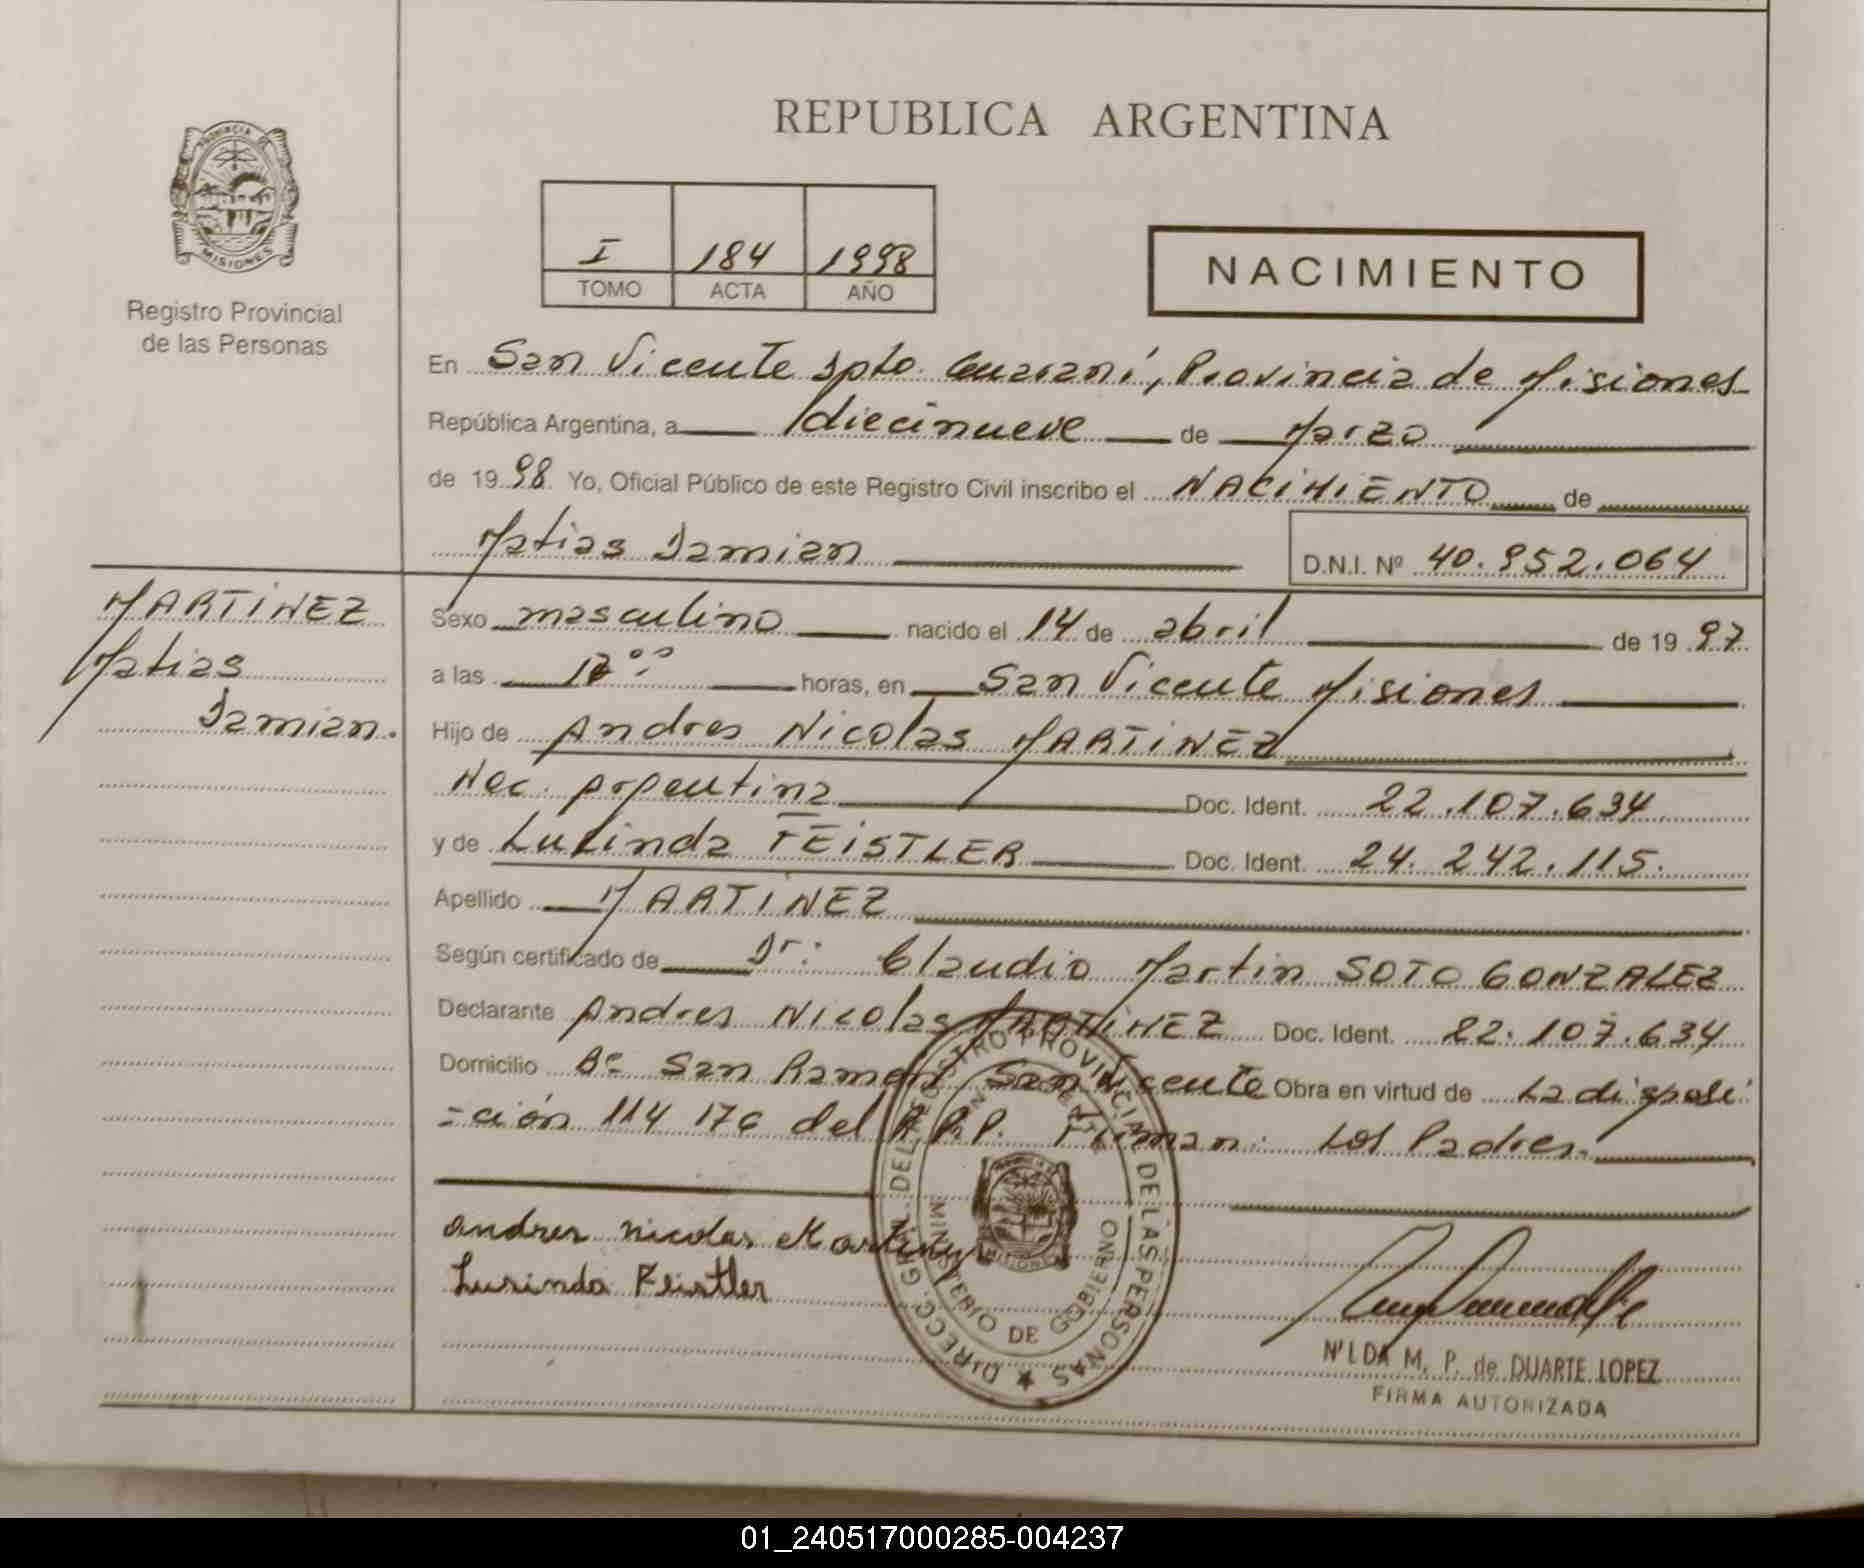 REPUBLICA ARGENTINA
PROVINCIA DE
MISIONES
Registro Provincial
de las Personas
I 184 1998
TOMO ACTA AÑO
NACIMIENTO
En San Vicente Dpto. Guarani, Provincia de Misiones
República Argentina, a diecinueve de Marzo
de 1998 Yo, Oficial Público de este Registro Civil inscribo el NACIMIENTO de
Matias Damian D.N.I. Nº 40.952.064
MARTINEZ
Matias
Damian.
Sexo masculino nacido el 14 de abril de 1997
a las horas, en San Vicente Misiones
Hijo de Andres Nicolas MARTINEZ
Nac. Argentina Doc. Ident. 22.107.634
y de Lucinda FEISTLER Doc. Ident. 24.242.115.
Apellido MARTINEZ
Según certificado de Dr: Claudio Martin SOTO GONZALEZ
Declarante Andres Nicolas MARTINEZ Doc. Ident. 22.107.634
Domicilio Bº San Ramon San Vicente Obra en virtud de La disposi
=ción 114 176 del R.P.P. Firman: Los Padres.
andres nicolas Martinez
Lusinda Feistler
DIRECC. GRAL. DEL REGISTRO PROVINCIAL DE LAS PERSONAS
MINISTERIO DE GOBIERNO
MISIONES
NILDA M. P. de DUARTE LOPEZ
FIRMA AUTORIZADA
01_240517000285-004237